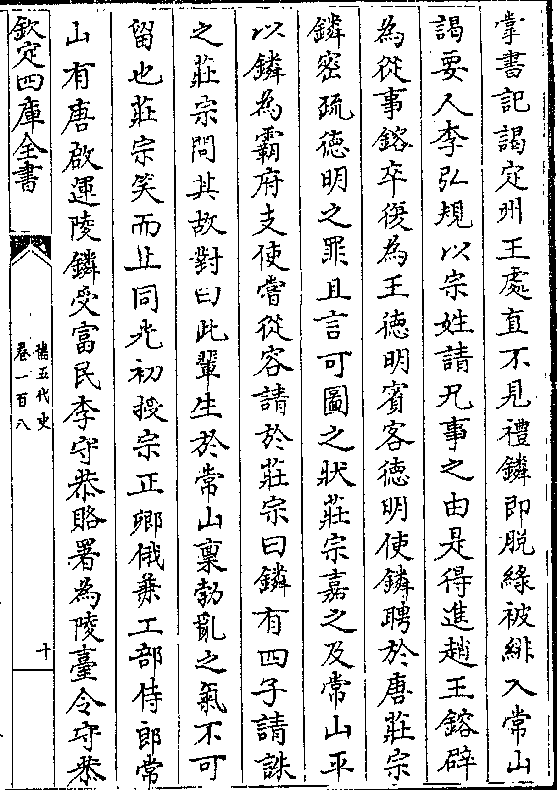 掌書記謁定州王處直不見禮鏻即脫緑被緋入常山
謁要人李弘規以宗姓請兄事之由是得進趙王鎔辟
為從事鎔卒復為王徳明賓客徳明使鏻聘於唐莊宗
鏻密疏徳明之罪且言可圖之狀莊宗嘉之及常山平
以鏻為霸府支使嘗從容請於莊宗曰鏻有四子請誅
之莊宗問其故對曰此輩生於常山稟勃亂之氣不可
留也莊宗笑而止同光初授宗正卿俄兼工部侍郎常
山有唐啟運陵鏻受富民李守恭賂署為陵臺令守恭
欽定四庫全書
舊五代史
卷一百八
十